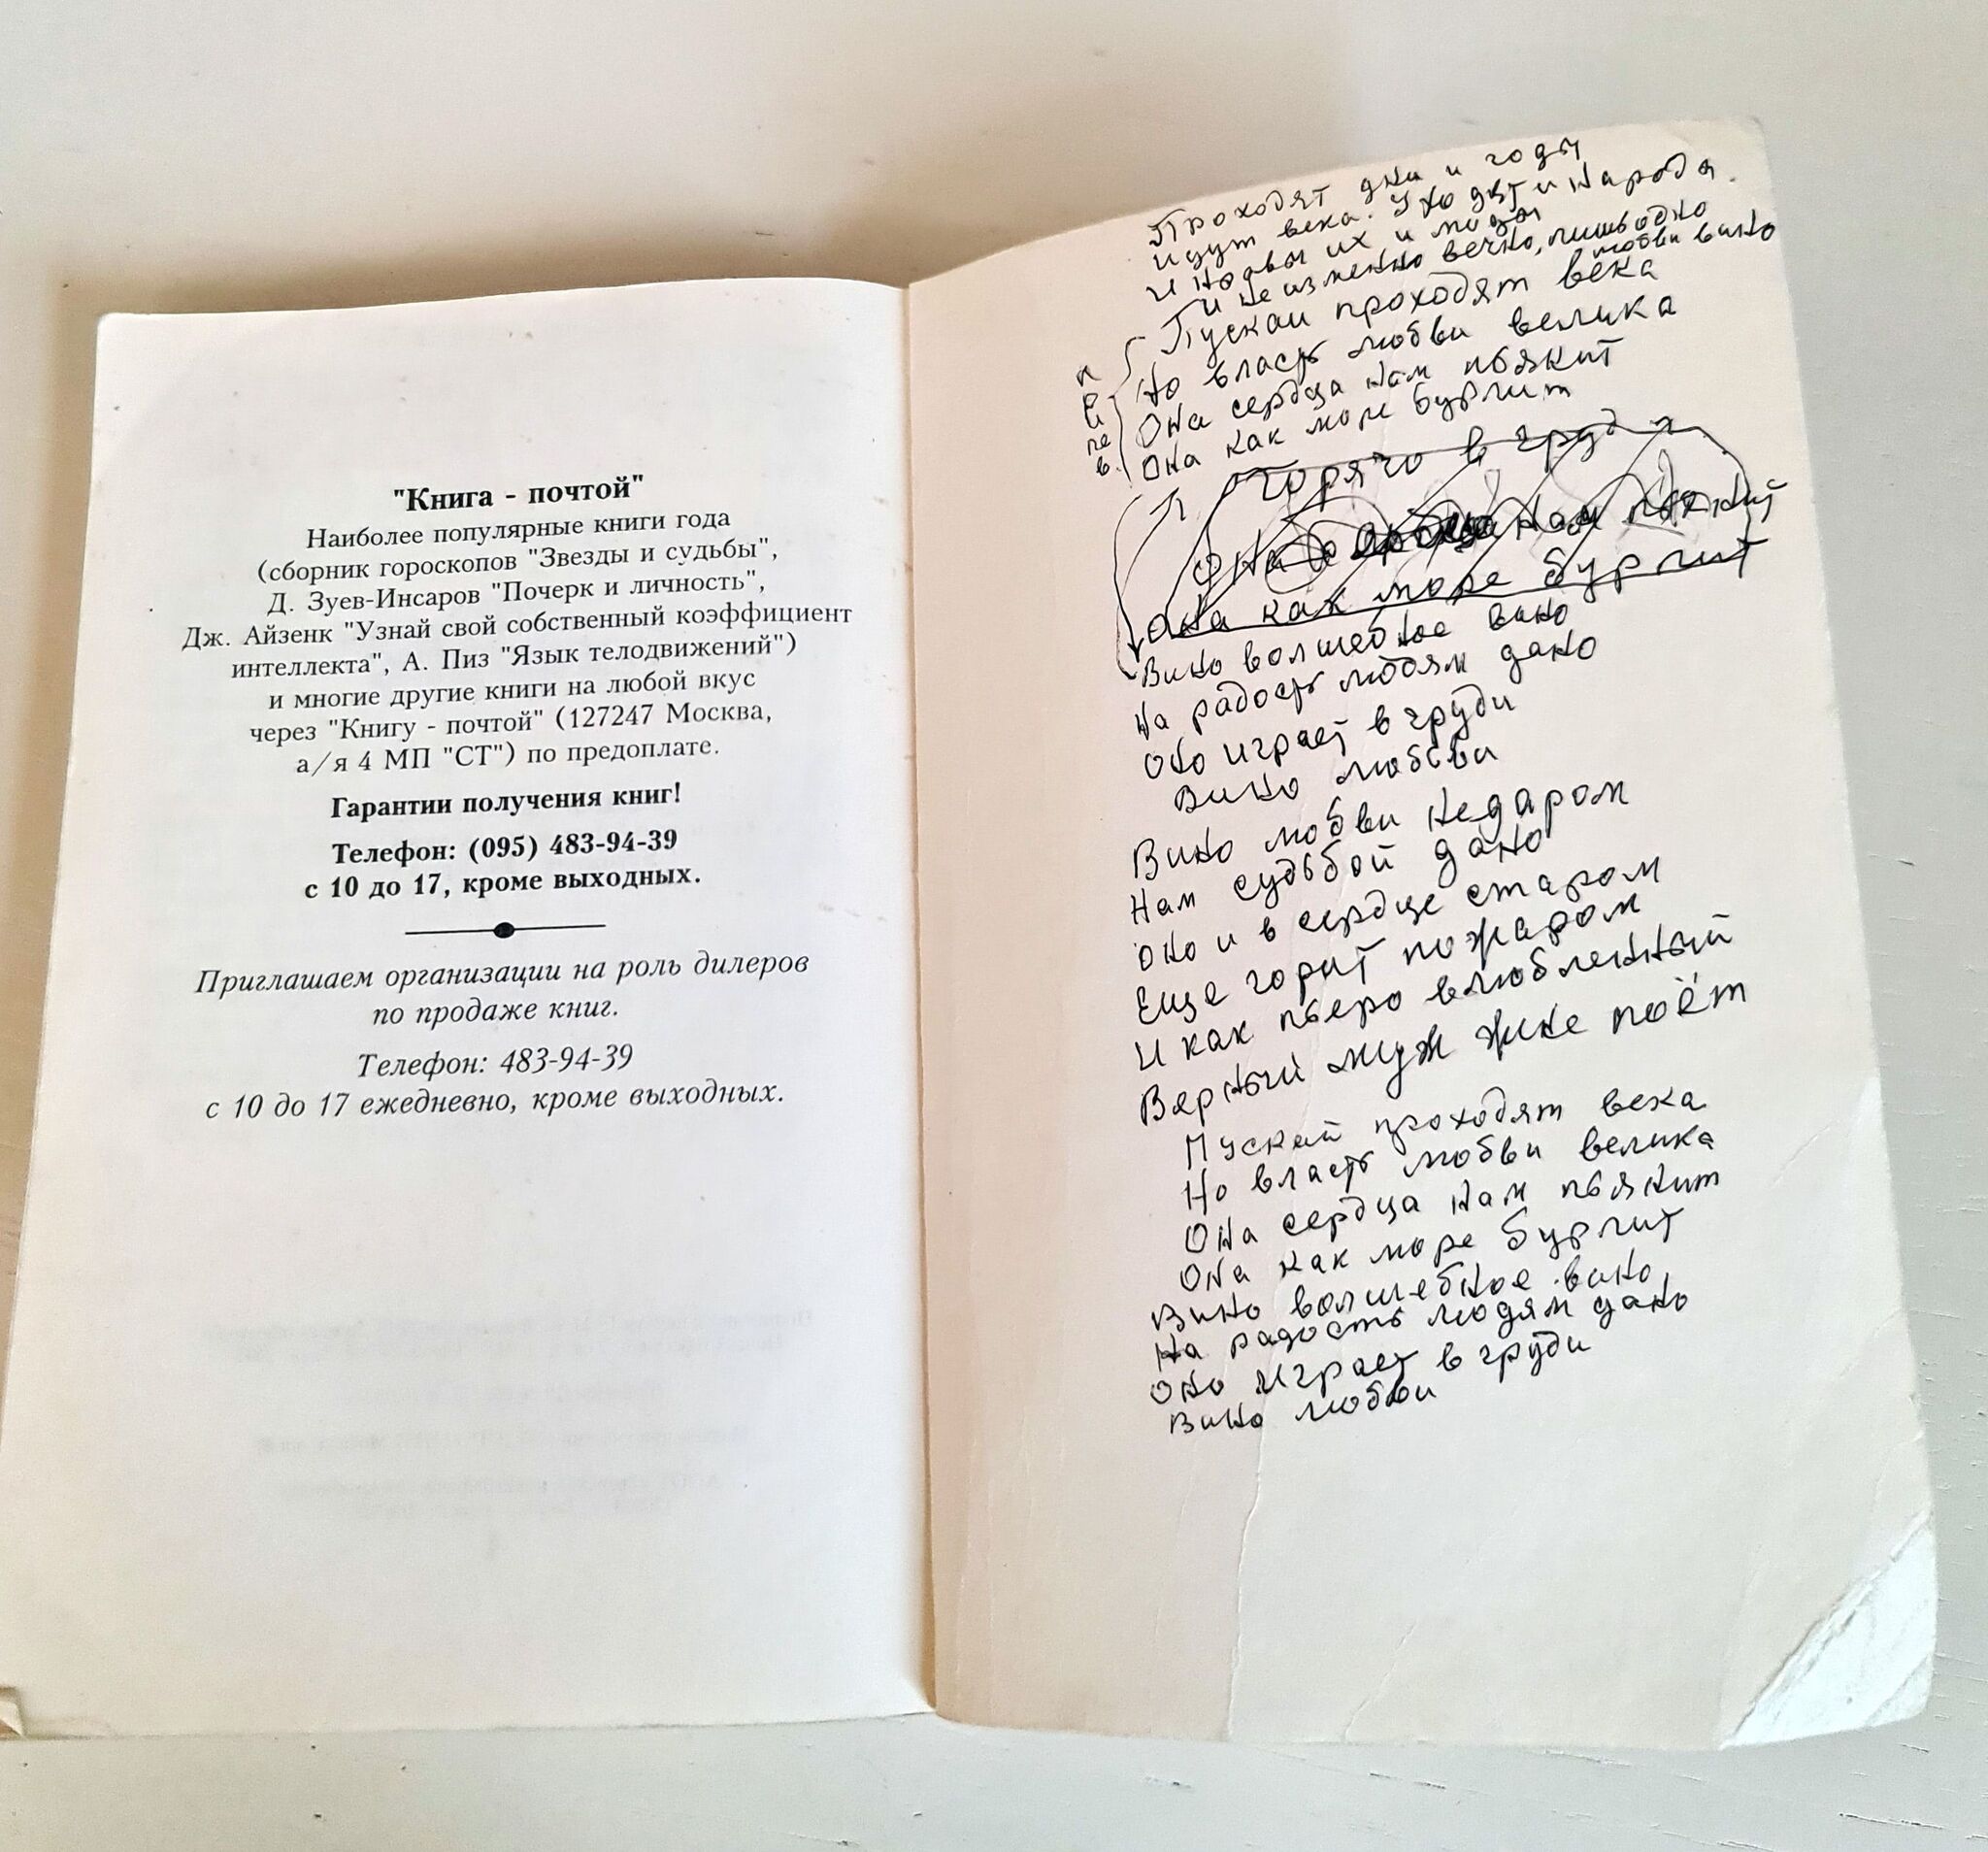 "Книга - почтой"
Наиболее популярные книги года
(сборник гороскопов "Звезды и судьбы",
Д. Зуев-Инсаров "Почерк и личность",
Дж. Айзенк "Узнай свой собственный коэффициент
интеллекта", А. Пиз "Язык телодвижений")
и многие другие книги на любой вкус
через "Книгу - почтой" (127247 Москва,
а/я 4 МП "СТ") по предоплате.
Гарантии получения книг!
Телефон: (095) 483-94-39
с 10 до 17, кроме выходных.
Приглашаем организации на роль дилеров
по продаже книг.
Телефон: 483-94-39
с 10 до 17 ежедневно, кроме выходных.
Проходят дни и годы
идут века. Уходят и народы.
и нравы их и моды
и неизменно вечно, лишь одно
любви вино
Пускай проходят века
Но власть любви велика
Она сердца нам пьянит
Она как море бурлит
Горячо в груди
Она сердца нам пьянит
Она как море бурлит
Вино волшебное вино
На радость людям дано
Оно играет в груди
Вино любви
Вино любви недаром
Нам судьбой дано
Оно и в сердце старом
Еще горит пожаром
И как пьеро влюбленный
Верный муж жине поёт
Пускай проходят века
Но власть любви велика
Она сердца нам пьянит
Она как море бурлит
Вино волшебное вино
На радость людям дано
Оно играет в груди
Вино любви